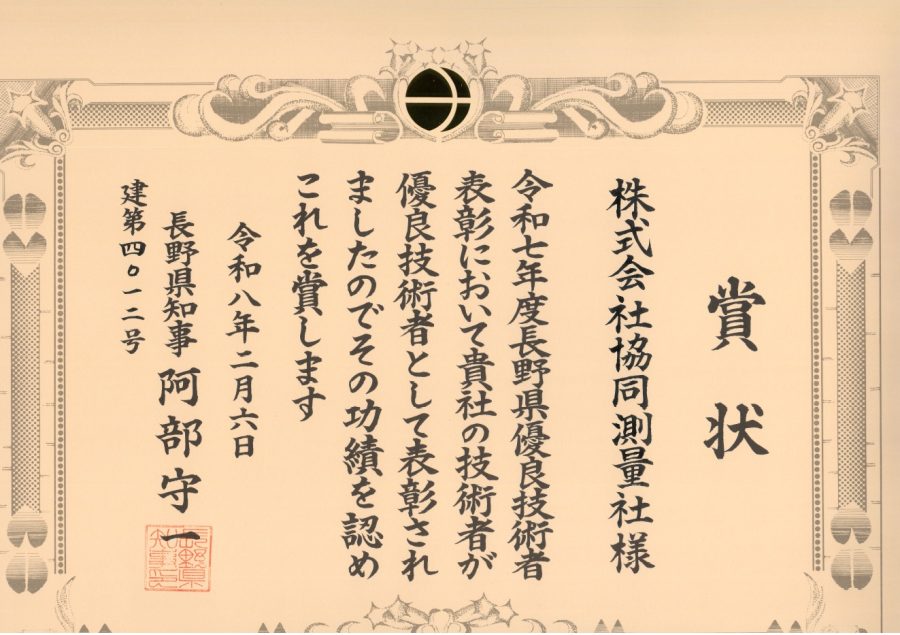 賞状
株式会社協同測量社様
令和七年度長野県優良技術者
表彰において貴社の技術者が
優良技術者として表彰され
ましたのでその功績を認め
これを賞します
令和八年二月六日
長野県知事 阿部守一
長野県知事印
建第四〇一二号